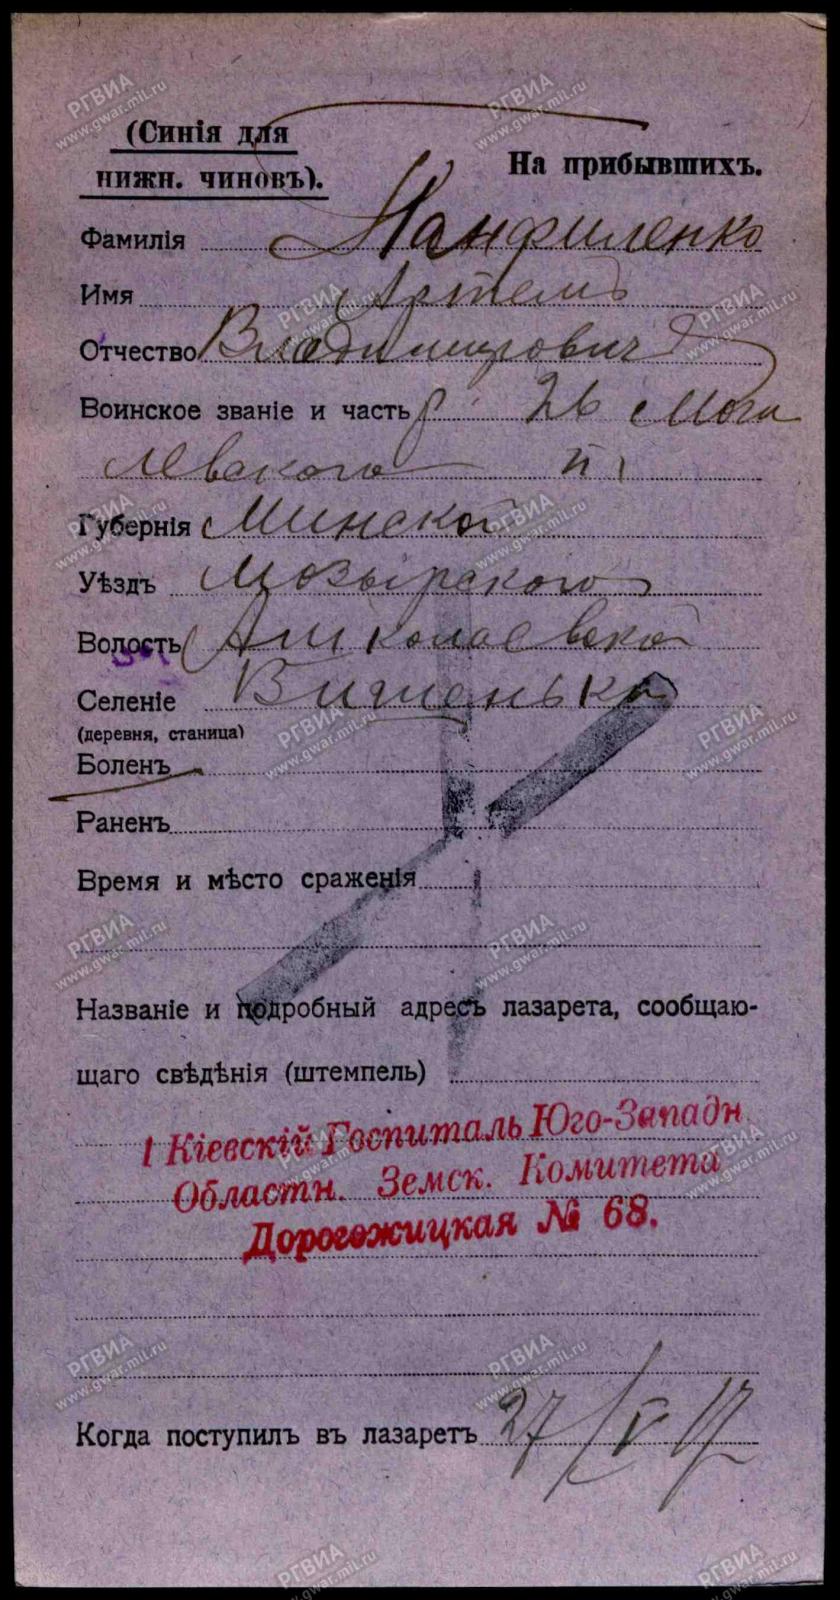 (Синія для
нижн. чиновъ).
На прибывшихъ.
Фамилія Панфиленко
Имя Артемъ
Отчество Владимирович
Воинское званіе и часть р. 26 Моги
левского п.
Губернія Минской
Уѣздъ Мозырского
Волость
Селеніе
(деревня, станица)
Боленъ
Раненъ
Время и мѣсто сраженія
Названіе и подробный адресъ лазарета, сообщаю-
щаго свѣдѣнія (штемпель)
1 Кіевскій Госпиталь Юго-Западн.
Областн. Земск. Комитета
Дорогожицкая № 68.
Когда поступилъ въ лазаретъ 27/V 17
РГВИА
www.gwar.mil.ru